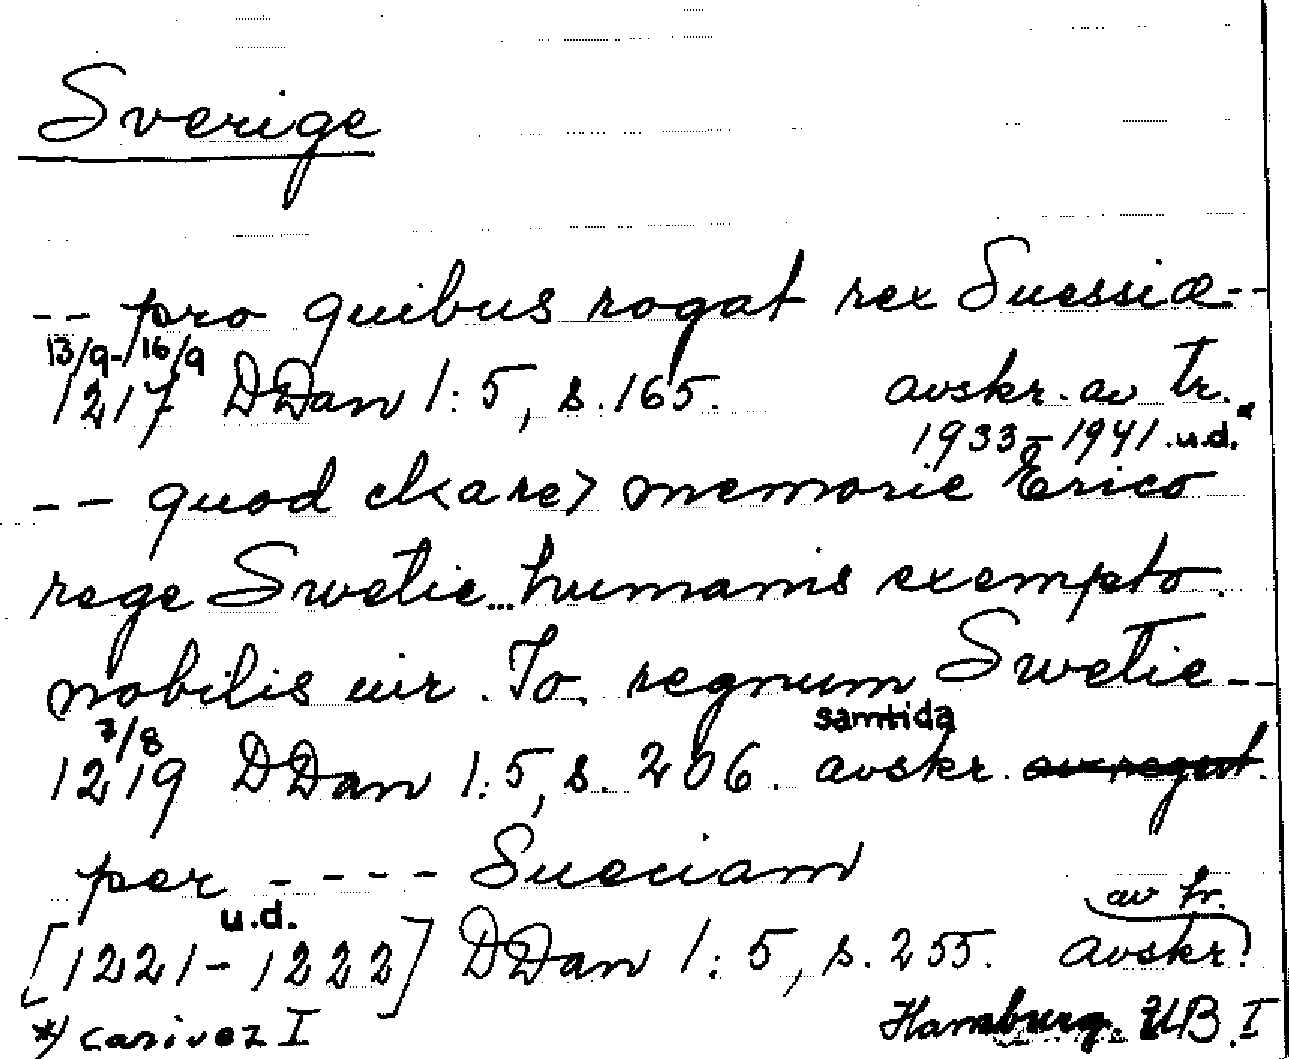 Sverige
-- pro quibus rogat rex Suessiæ--
13/9-16/9
1217 DDan 1:5, s.165. avskr. av tr.*
1933-1941 u.d.
-- quod cl<are> memorie Erico
rege Swetie... humanis exempto
nobilis uir. Jo. regnum Swetie--
7/8 samtida
1219 DDan 1:5, s. 206. avskr. av regist.
per ---- Sueciam
u.d. av tr.
[1221-1222] DDan 1:5, s. 255. avskr.
*) Carivez I Hamburg UB. I